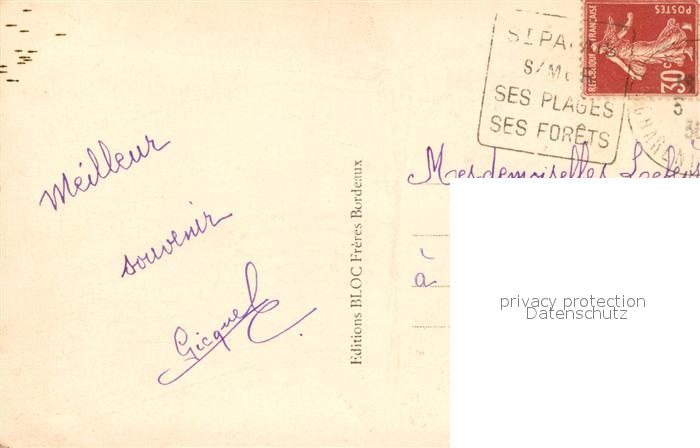 Meilleur
souvenir
Gicquel
Editions BLOC Frères Bordeaux
S/MER
SES PLAGES
SES FORÊTS
REPUBLIQUE FRANÇAISE
POSTES
30c
Mesdemoiselles
à
à
privacy protection
Datenschutz